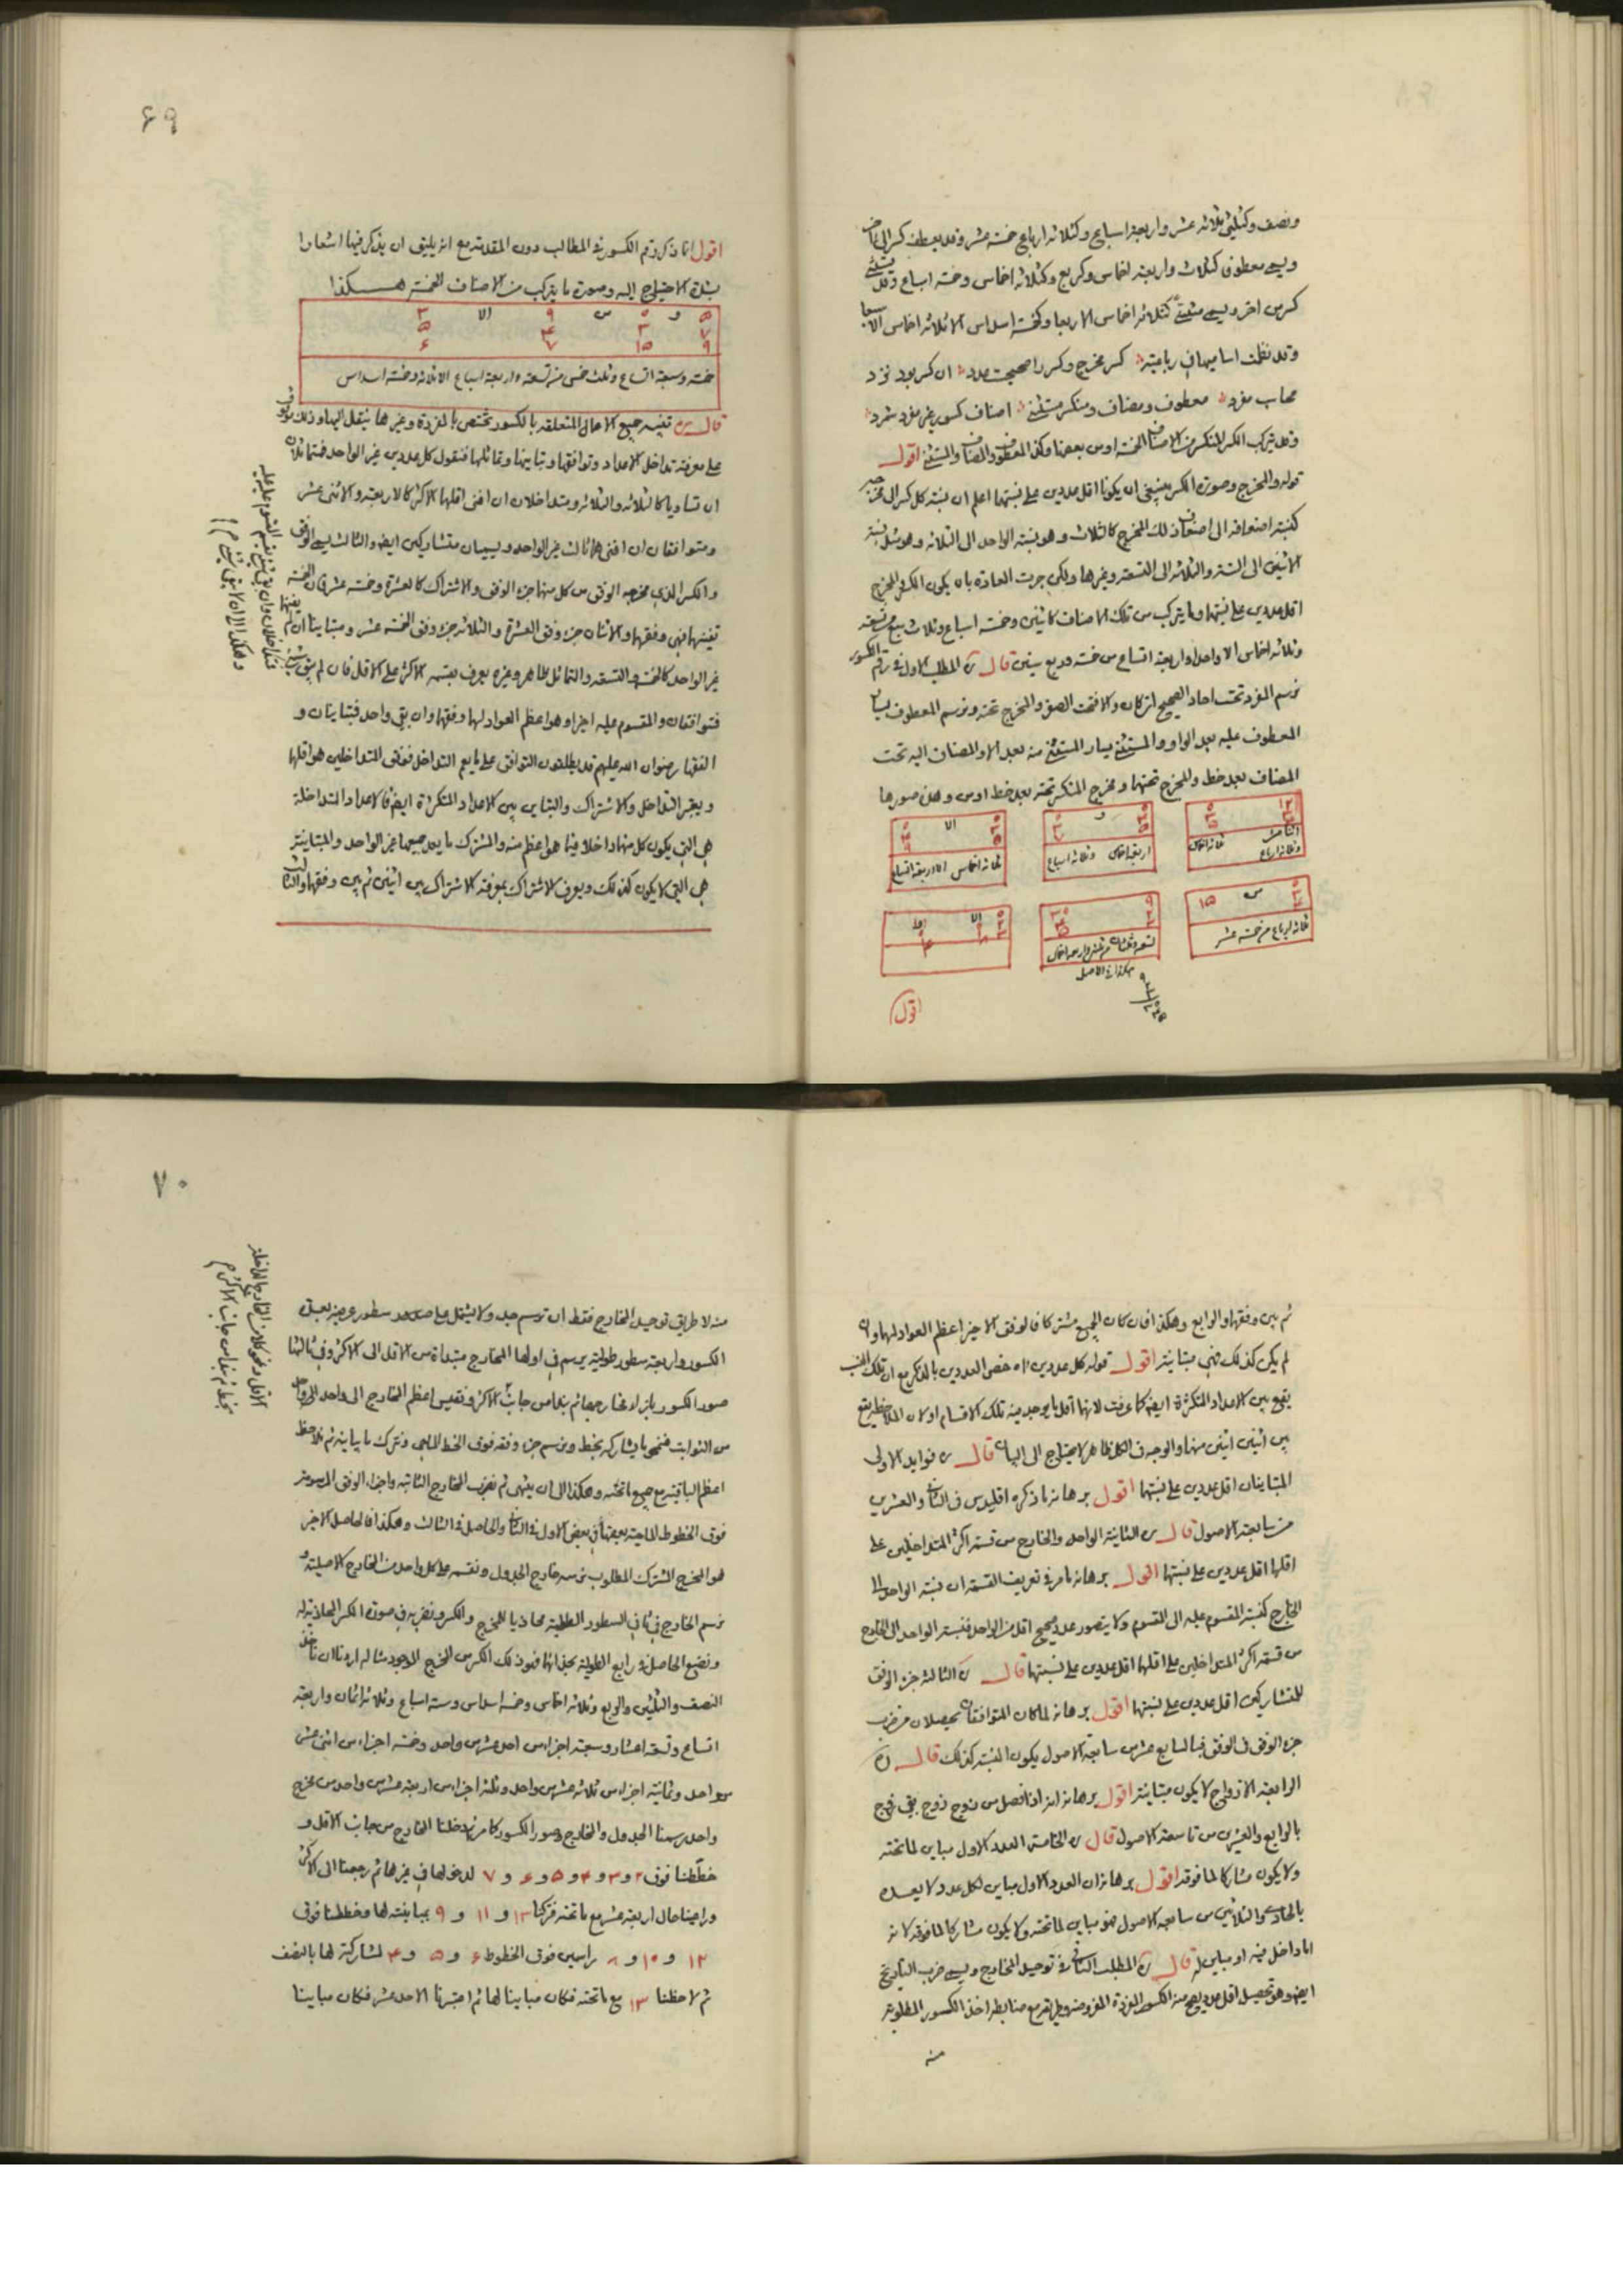 ونصف وكثلثى ثلاثة عشر واربعة اسباع وكثلاثة ارباع خمسة عشر وقد يعطف كسر الى
ويسمى معطوف كثلاث واربعة اخماس وكربع وكثلاثة اخماس وخمسة اسباع وقد يستثنى
كسر من اخر ويسمى مستثنى كثلاثة اخماس الا ربعا وكخمسة اسداس الا ثلاثة اخماس الا سبعا
وقد نظمت اساميها فى رباعية كسر مخرج وكسر را صحيحت عدد ان كسر بود نزد
محاسب مفرد معطوف ومضاف ومنكسر مستثنى اصناف كسور غير مفرد شمرد
وقد يتركب الكسر المنكسر من الاصناف الخمسة او من بعضها وكذا المعطوف والمضاف والمستثنى اقول
قوله والمخرج وصورة الكسر ينبغى ان يكونا اقل عددين على نسبتهما اعلم ان نسبة كل كسر الى مخرجه
كنسبة اضعافه الى اضعاف ذلك المخرج كالثلاث وهو نسبة الواحد الى الثلاثة وهو مثل نسبة
الاثنين الى الستة والثلاثة الى التسعة وغيرها ولكن جرت العادة بان يكون الكسر والمخرج
اقل عددين على نسبتهما وما يتركب من تلك الاصناف كاثنين وخمسة اسباع وثلاث سبع من تسعة
وثلاثة اخماس الا واحدا واربعة اتساع من خمسة وربع ستين قال المطلب الاول فى رقم الكسور
نرسم المفرد تحت احاد الصحيح ان كان والا فتحت الصفر والمخرج تحته ونرسم المعطوف يسار
المعطوف عليه بعد الواو والمستثنى يسار المستثنى منه بعد الا والمضاف اليه تحت
المضاف بعد خط والمخرج تحتهما ومخرج المنكسر تحته بعد خط او من وهذه صورها
و
الا
ثلاثة اخماس
اربعة اخماس وثلاثة اسباع
ثلاثة اخماس الا اربعة اتساع
س ١٥
الا
ثلاثة ارباع من خمسة عشر
هكذا فى الاصل
اقول
٦٩
اقول انما ذكر رقم الكسور فى المطالب دون المقدمة مع انه يليق ان يذكر فيها اشعارا
بشدة الاحتياج اليه وصورة ما يتركب من الاصناف الخمسة هكذا
خمسة وسبعة اتساع وثلث خمس من تسعة واربعة اسباع الا ثلاثة وخمسة اسداس
قال تنبيه جميع الاعمال المتعلقة بالكسور تختص بالمفردة وغيرها ينقل اليها وذلك موقوف
على معرفة تداخل الاعداد وتوافقها وتباينها وتماثلها فنقول كل عددين غير الواحد فمتماثلان
ان تساويا كالثلاثة والثلاثة ومتداخلان ان افنى اقلهما الاكثر كالاربعة والاثنى عشر
ومتوافقان ان افنى هما ثالث غير الواحد ويسميان متشاركين ايضا والثالث يسمى الوفق
والكسر الذى مخرجه الوفق من كل منهما جزء الوفق والاشتراك كالعشرة وخمسة عشر فان الخمسة
تفنيهما فهى وفقهما والاثنان جزء وفق العشرة والثلاثة جزء وفق الخمسة عشر ومتباينان ان لم يفنهما
غير الواحد كالخمسة والتسعة والتماثل ظاهر وغيره يعرف بقسمة الاكثر على الاقل فان لم يبق شئ
فتوافقان والمقسوم عليه اخيرا وهو اعظم العواد لهما وفقهما وان بقى واحد فمتباينان و
الفقهاء رضوان الله عليهم قد يطلقون التوافق على ما يعم التداخل فوفق المتداخلين هو اقلهما
ويعتبر التداخل والاشتراك والتباين بين الاعداد المتكثرة ايضا فالاعداد المتداخلة
هى التى يكون كل منها داخلا فيما هو اعظم منه والمشتركة ما يعد جميعها غير الواحد والمتباينة
هى التى لا يكون كذلك ويعرف الاشتراك بمعرفة الاشتراك بين اثنين ثم بين وفقهما والثالث
ثم بين وفقهما والرابع وهكذا فان كان الجميع مشتركا فالوفق الاخير اعظم العواد لها وان
لم يكن كذلك فهى متباينة اقول قوله كل عددين اه خص العددين بالذكر مع ان تلك النسب
يقع بين الاعداد المتكثرة ايضا كما عرفت لانهما اقل ما يوجد فيه تلك الاقسام اولان الملاحظة يقع
بين اثنين اثنين منها والوجه فى الكل ظاهر لا يحتاج الى البيان قال فوايد الاولى
المتباينان اقل عددين على نسبتهما اقول برهانه ما ذكره اقليدس فى الثالث والعشرين
من سابعة الاصول قال الثانية الواحد والخارج من قسمة اكثر المتداخلين على
اقلهما اقل عددين على نسبتهما اقول برهانه ما مر فى تعريف القسمة ان نسبة الواحد الى
الخارج كنسبة المقسوم عليه الى المقسوم ولا يتصور عدد صحيح اقل من الواحد فنسبة الواحد الى الخارج
من قسمة اكثر المتداخلين على اقلهما اقل عددين على نسبتهما قال الثالثة جزء الوفق
للمتشاركين اقل عددين على نسبتهما اقول برهانه لما كان المتوافقان يحصلان من ضرب
جزء الوفق فى الوفق فبالسابع عشر من سابعة الاصول يكون النسبة كذلك قال
الرابعة الازواج لا يكون متباينة اقول برهانه انه اذا فصل من زوج زوج بقى زوج
بالرابع والعشرين من تاسعة الاصول قال الخامسة العدد الاول مباين لما تحته
ولا يكون مشاركا لما فوقه اقول برهانه ان العدد الاول مباين لكل عدد لا يعده
بالحادى والثلاثين من سابعة الاصول فهو مباين لما تحته ولا يكون مشاركا لما فوقه لانه
اما داخل فيه او مباين له قال المطلب الثانى فى توحيد المخارج ويسمى ضرب التاريخ
ايضا وهو تحصيل اقل عدد يصح منه الكسور المفردة المفروضة وطريقه مع ضابطة اخذ الكسور المطلوبة
منه
٧٠
منه لا طريق توحيد المخارج فقط ان نرسم جدولا يشتمل على سطور عرضية بعدة
الكسور واربعة سطور طولية يرسم فى اولها المخارج مبتداة من الاقل الى الاكثر وفى ثالثها
صور الكسور بازاء مخارجها ثم بدا من جانب الاكثر ونقيس اعظم المخارج الى واحد واحد
من الثوابت فنمحو ما يشاركه بخط ونرسم جزء وفقه فوق الخط الماحى ونترك ما يباينه ثم نلاحظ
اعظم الباقية مع جميع ما تحته وهكذا الى ان ينتهى ثم نضرب المخارج الثابتة واجزاء الوفق المرسومة
فوق الخطوط الماحية بعضها فى بعض الاول فى الثانى والحاصل فى الثالث وهكذا فالحاصل الاخير
هو المخرج المشترك المطلوب نرسمه خارج الجدول ونقسمه على كل واحد من المخارج الاصلية و
نرسم الخارج فى ثانى السطور الطولية محاذيا للمخرج والكسر ونضربه فى صورة الكسر المحاذية له
ونضع الحاصل فى رابع الطولية بحذائها فهو ذلك الكسر من المخرج الموجود مثاله اردنا ان ناخذ
النصف والثلثين والربع وثلاثة اخماس وخمسة اسداس وستة اسباع وثلاثة اثمان واربعة
اتساع وتسعة اعشار وسبعة اجزاء من احد عشر من واحد وخمسة اجزاء من اثنى عشر
من واحد وثمانية اجزاء من ثلاثة عشر من واحد وثلثة اجزاء من اربعة عشر من واحد من مخرج
واحد رسمنا الجدول والمخارج وصور الكسور كما مر ثم دخلنا المخارج من جانب الاقل و
خططنا فوق ٢ و ٣ و ۴ و ۵ و ۶ و ٧ لدخولها فى غيرها ثم رجعنا الى الاكثر
وراعينا حال اربعة عشر مع ما تحته فتركنا ١٣ و ١١ و ٩ بمباينته لها وخططنا فوق
١٢ و ١٠ و ٨ راسمين فوق الخطوط ۶ و ۵ و ۴ لمشاركته لها بالنصف
ثم لاحظنا ١٣ مع ما تحته فكان مباينا لها ثم اعتبرنا الاحد عشر فكان مباينا